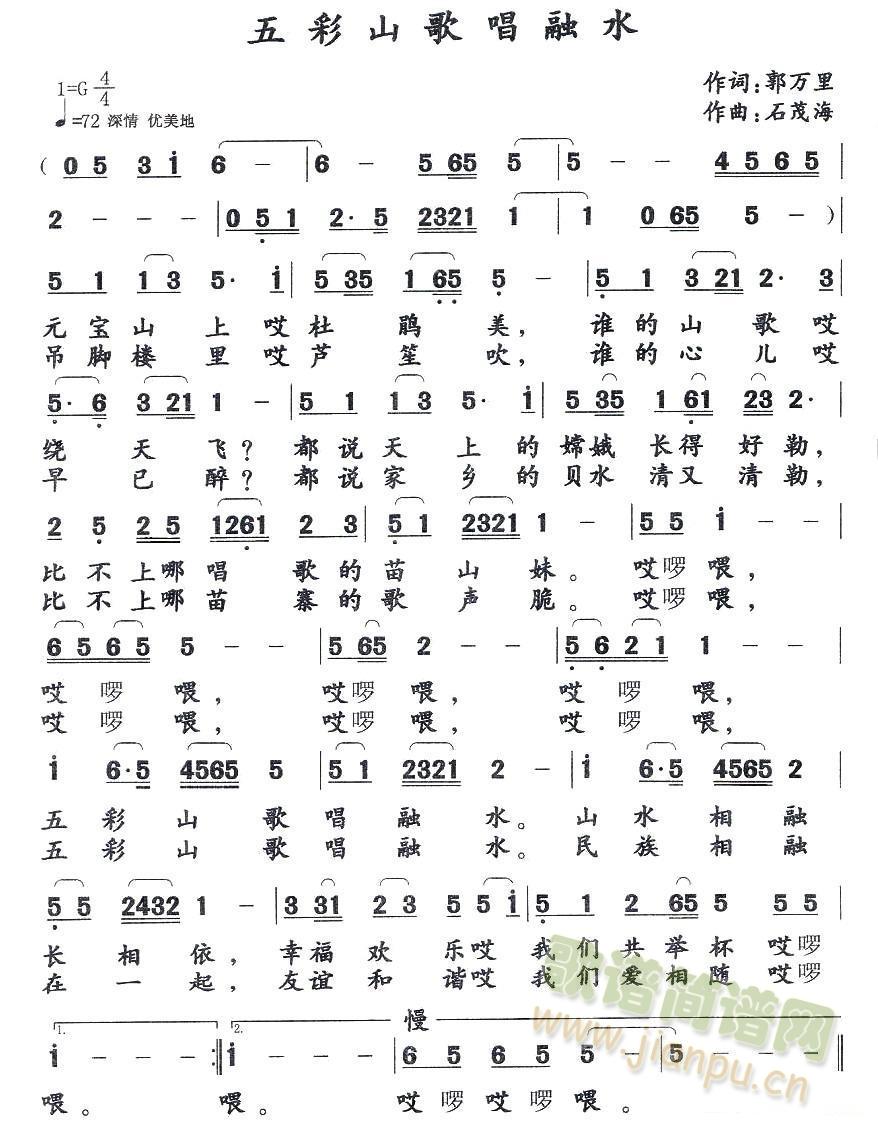 五彩山歌唱融水
1=G 4/4
作词:郭万里
♩=72 深情 优美地
作曲:石茂海
( 0 5 3 i 6 - | 6 - 5 65 5 | 5 - - 4 5 6 5 |
2 - - - | 0 5 1 2· 5 2321 1 | 1 0 65 5 - ) |
5 1 1 3 5· i | 5 35 1 65 5 - | 5 1 3 21 2· 3
元宝山上哎杜鹃美,谁的山歌哎
吊脚楼里哎芦笙吹,谁的心儿哎
5· 6 3 21 1 - | 5 1 1 3 5· i | 5 35 1 61 23 2·
绕天飞?都说天上的嫦娥长得好勒,
早已醉?都说家乡的贝水清又清勒,
2 5 2 5 1261 2 3 | 5 1 2321 1 - | 5 5 i -
比不上哪唱歌的苗山妹。哎啰喂,
比不上哪苗寨的歌声脆。哎啰喂,
6 5 6 5 5 - - | 5 65 2 - - | 5 6 2 1 1 - - |
哎啰喂,哎啰喂,哎啰喂,
哎啰喂,哎啰喂,哎啰喂,
i 6·5 4565 5 | 5 1 2321 2 - | i 6·5 4565 2
五彩山歌唱融水。山水相融
五彩山歌唱融水。民族相融
5 5 2432 1 - | 3 31 2 3 5 5 i | 5 1 2 65 5 5 5 |
长相依,幸福欢乐哎我们共举杯哎啰
在一起,友谊和谐哎我们爱相随哎啰
1. 2. 慢
i - - - :| i - - - | 6 5 6 5 5 - | 5 - - - ‖
喂。喂。哎啰哎啰喂。
歌谱简谱网
www.jianpu.cn